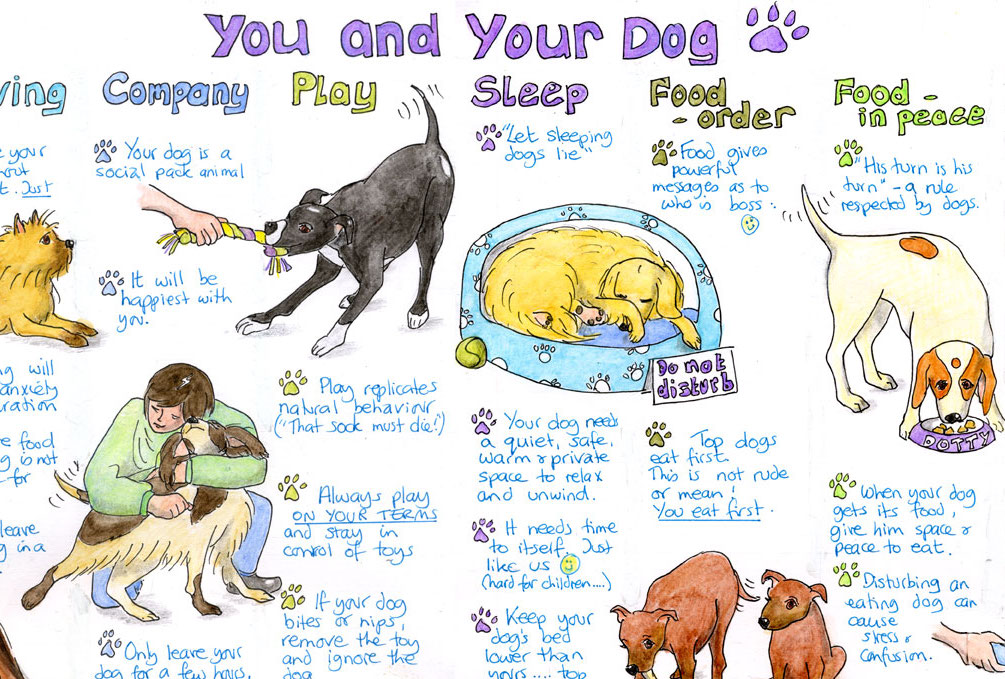 You and Your Dog
ving
e your
hout
t. Just
ng will
anxiety
uration
re food
g is not
- for
leave
g in a
Company
Your dog is a
social pack animal
It will be
happiest with
you.
Only leave your
dog for a few hours.
Play
Play replicates
natural behaviour
("That sock must die!")
Always play
ON YOUR TERMS
and stay in
control of toys
If your dog
bites or nips,
remove the toy
and ignore the
dog
Sleep
"Let sleeping
dogs lie"
Do not
disturb
Your dog needs
a quiet, safe,
warm & private
space to relax
and unwind.
It needs time
to itself. Just
like us
(hard for children....)
Keep your
dog's bed
lower than
yours .... top
Food
- order
Food gives
powerful
messages as to
who is boss.
Top dogs
eat first.
This is not rude
or mean!
You eat first.
Food -
in peace
"His turn is his
turn" - a rule
respected by dogs.
DOTTY
When your dog
gets its food,
give him space &
peace to eat.
Disturbing an
eating dog can
cause
stress &
confusion.